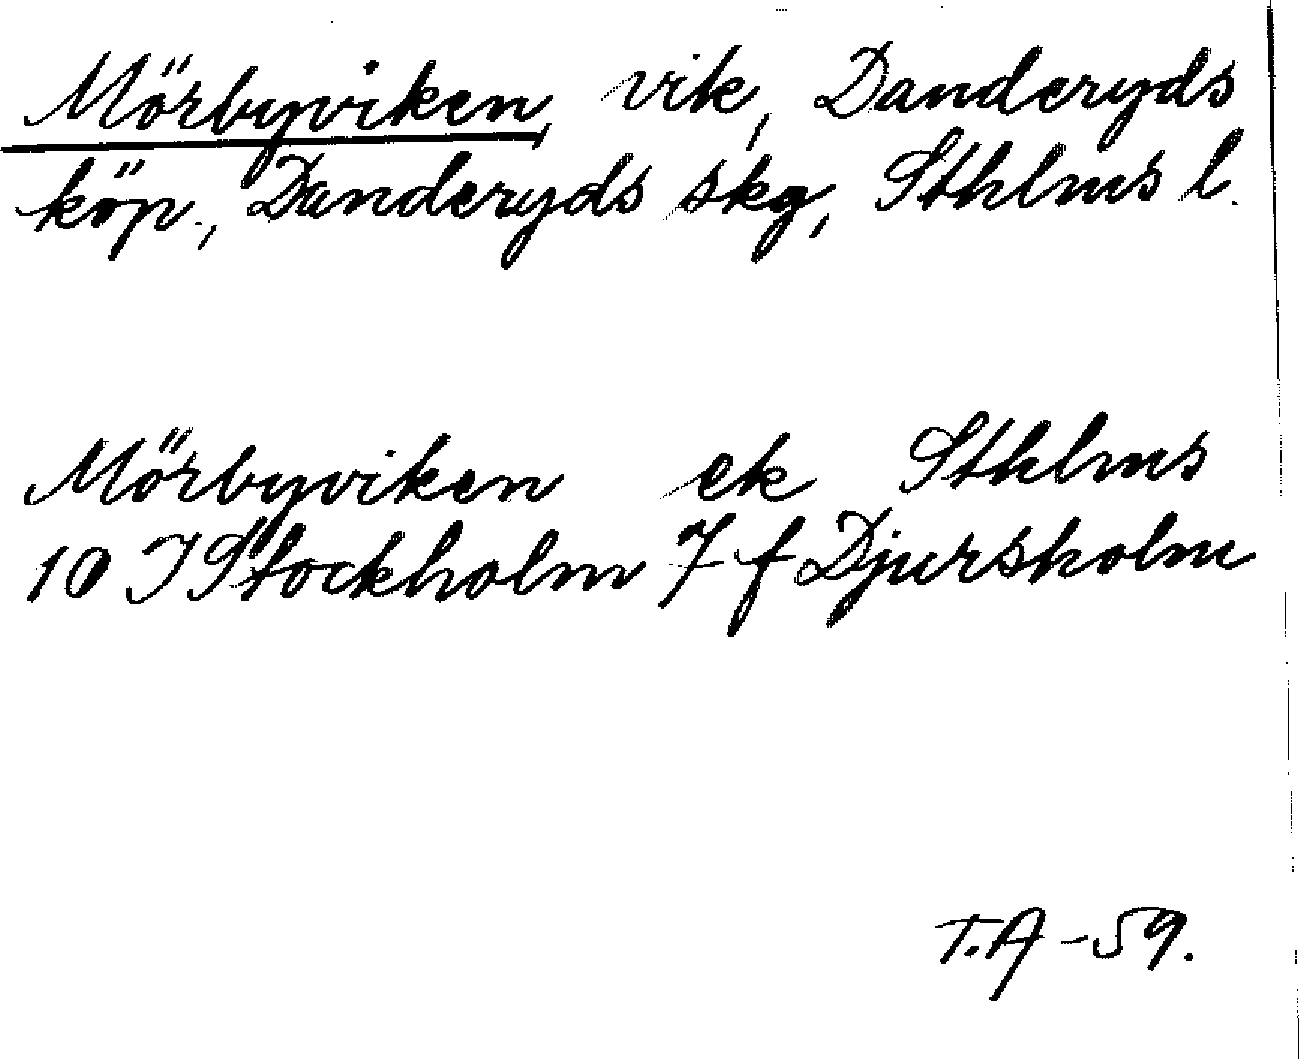 Mörbyviken, vik, Danderyds
köp., Danderyds skg, Sthlms l.
Mörbyviken ek Sthlms
10 I Stockholm 7 f Djursholm
T.A -59.